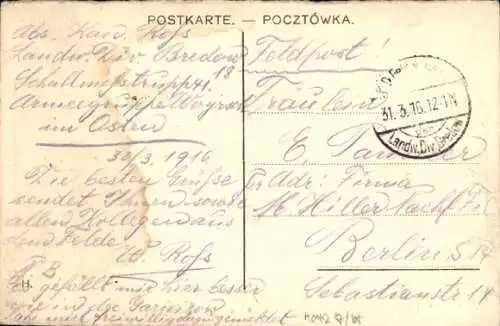 POSTKARTE. — POCZTÓWKA.
Abs. Kan. Roß
Landw. Div Bredow
Schallmeßtrupp 41. 18
Armeegruppe Woyrsch
im Osten
30/3. 1916
Die besten Grüße
sendet Ihnen sowie
allen Kollegen aus
dem Felde
W. Roß
gefällt mir hier besser
wie in der Garnison
Habe mich freiwillig gemeldet
H.
Feldpost!
31.3.16.12-1N
Landw. Div. Bredow
Fräulein
E.
Adr: Firma
M. Hiller Nachf.
Berlin S
Sebastianstr 14